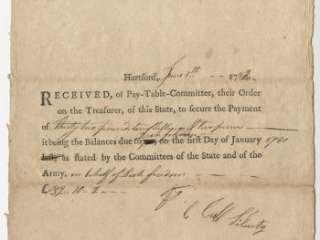 Hartford, June 1st 1782
RECEIVED, of Pay-Table-Committee, their Order
on the Treasurer, of this State, to secure the Payment
of Thirty two pounds ten shillings & two pence
it being the Balances due to on the first Day of January 1780
last, as stated by the Committees of the State and of the
Army, on behalf of freedom
£32 10 2